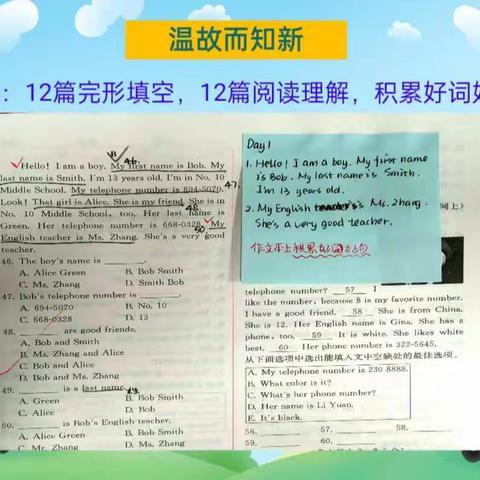 温故而知新
：12篇完形填空，12篇阅读理解，积累好词好
Hello! I am a boy. My first name is Bob. My
last name is Smith. I'm 13 years old. I'm in No. 10
Middle School. My telephone number is 694-5070.
Look! That girl is Alice. She is my friend. She is in
No. 10 Middle School, too. Her last name is
Green. Her telephone number is 668-0328. My
English teacher is Ms. Zhang. She's a very good
teacher.
B
46.
47.
48.
50.
46. The boy's name is ______.
A. Alice Green B. Bob Smith
C. Ms. Zhang D. Smith Bob
47. Bob's telephone number is ______.
A. 694-5070 B. No. 10
C. 668-0328 D. 13
48. ______ are good friends.
A. Bob and Smith
B. Ms. Zhang and Alice
C. Bob and Alice
D. Bob and Ms. Zhang
49. ______ is a last name.
A. Green B. Bob Smith
C. Alice D. Bob
50. ______ is Bob's English teacher.
A. Alice Green B. Bob Smith
C. Mr. Zhang D. Ms. Zhang
Day 1
1. Hello! I am a boy. My first name
is Bob. My last name is Smith.
I'm 13 years old.
2. My English teacher is Ms. Zhang.
She's a very good teacher.
作文本上积累好词好句
网上?
telephone number? 57 I
like the number, because 8 is my favorite number.
I have a good friend. 58 She is from China.
She is 12. Her English name is Gina. She has a
phone, too. 59 It is white. She likes white
best. 60 Her phone number is 322-5645.
从下面选项中选出能填入文中空缺处的最佳选项。
A. My telephone number is 230 8888.
B. What color is it?
C. What's her phone number?
D. Her name is Li Yuan.
E. It's black.
56. ______ 57. ______
59. ______ 60. ______